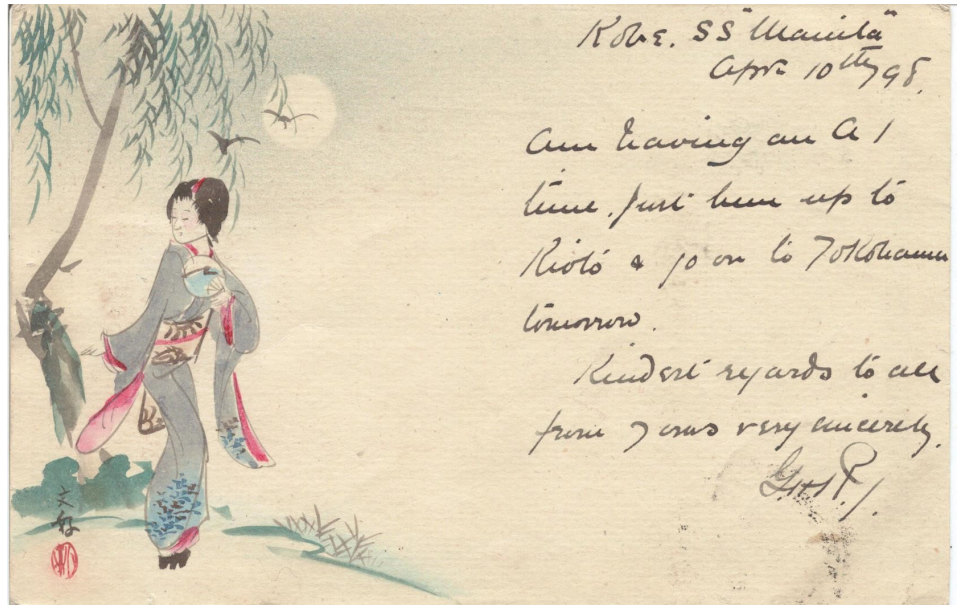 Kobe. SS "Manila"
Apr. 10th 98.
Am having an A 1
time. Just been up to
Kioto & go on to Yokohama
tomorrow.
Kindest regards to all
from Yours very sincerely.